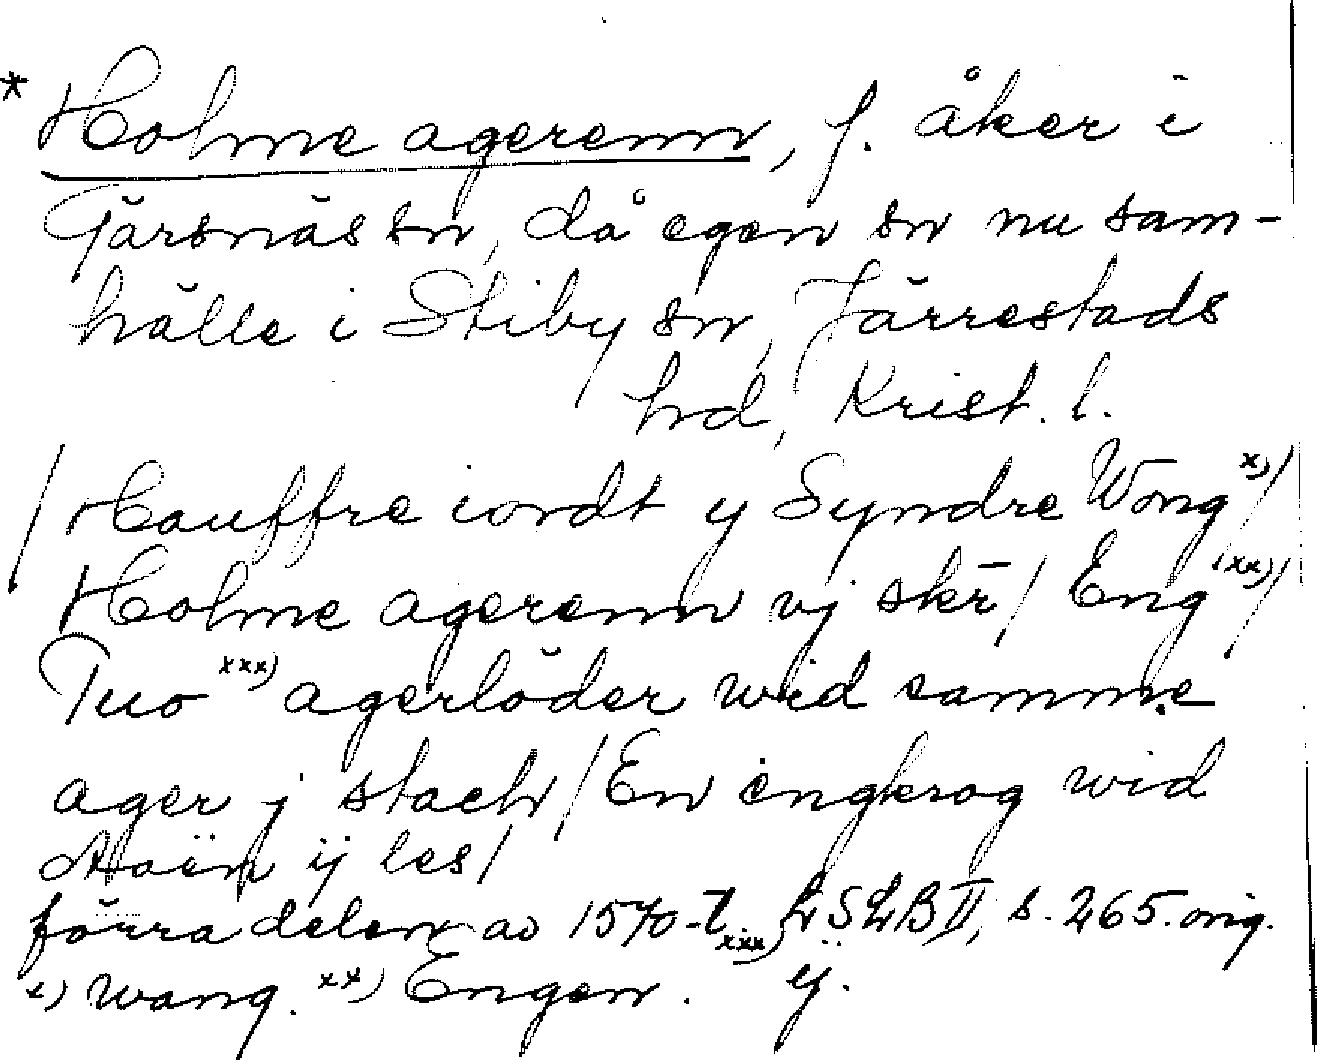 * Holme agerenn, f. åker i
Gärsnäs sn, då egen sn nu sam-
hälle i Stiby sn, Järrestads
hd, Krist. l.
/ Hauffre iordt y Syndre Wong x) /
Holme agerenn vj skr̄ / Eng xx) /
Tuo xxx) agerlöder wid samme
ager j stach / En engkrog wid
Aaën ij les /
förra delen av 1570-t. LSLB II, s. 265. orig.
x) wang. xx) Engen. xxx) ij.